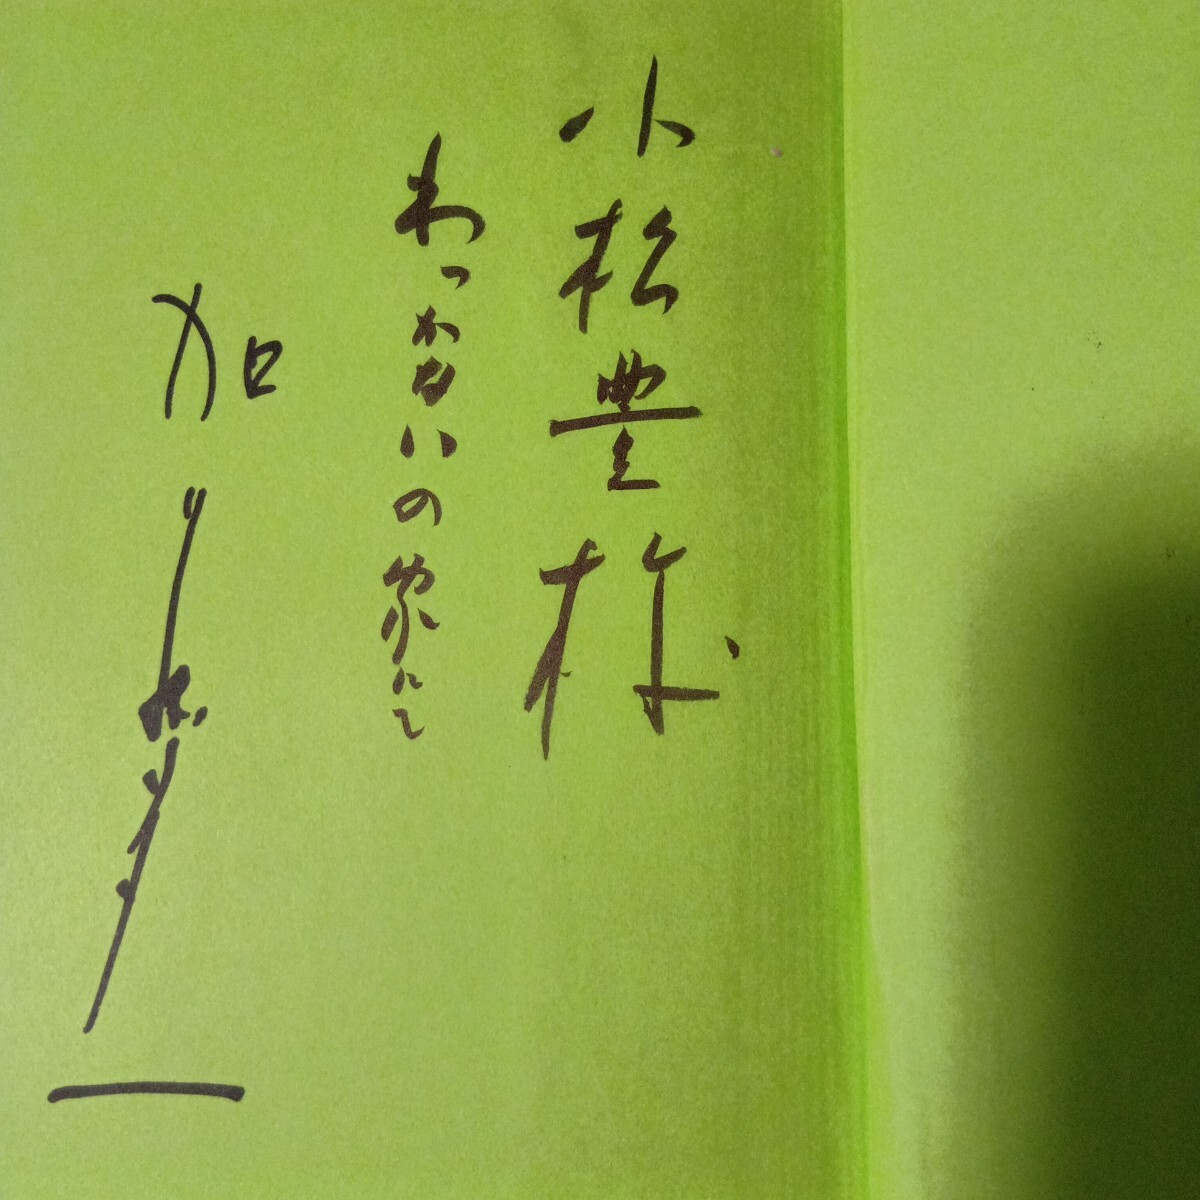 小松豊様
わっかないの家にて
加